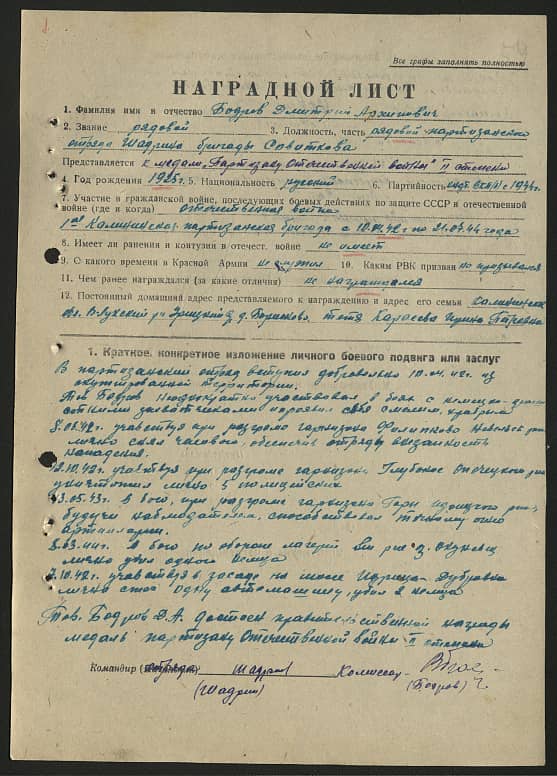 Все графы заполнять полностью
НАГРАДНОЙ ЛИСТ
1. Фамилия имя и отчество Бодров Дмитрий Архипович
2. Звание рядовой 3. Должность, часть рядовой-партизанского
отряда Шадрина бригады
Представляется к медали "Партизану Отечественной войны" II степени
4. Год рождения 1925 г. 5. Национальность русский 6. Партийность с 1944 г.
7. Участие в гражданской войне, последующих боевых действиях по защите СССР и отечественной
войне (где и когда) отечественная война
1ая Калининская партизанская бригада с 10.04.42 г. по 21.07.44 года
8. Имеет ли ранения и контузии в отечест. войне не имеет
9. С какого времени в Красной Армии не служил 10. Каким РВК призван не призывался
11. Чем ранее награждался (за какие отличия) не награждался
12. Постоянный домашний адрес представляемого к награждению и адрес его семьи Калининская
обл. В-Лукский д. Борисково. тетя Карасева Ирина Петровна
1. Краткое, конкретное изложение личного боевого подвига или заслуг
В партизанский отряд вступил добровольно 10.04.42 г. из
оккупированной территории.
Тов Бодров неоднократно участвовал в боях с немецко-
захватчиками проявил себя смелым, храбрым
участвуя при разгроме гарнизона Филиппково
лично снял часового, обеспечив отряду внезапность
нападения.
2.10.42 г. участвуя при разгроме гарнизона Глубокое Опочецкого
уничтожил лично 3 полицейских
3.05.43 г. в бою, при разгроме гарнизона
будучи наблюдателем, способствовал точному огню
артиллерии.
8.03.44 г. в бою по обороне лагерей
лично убил одного немца
7.10.42 г. участвуя в засаде на шоссе Идрица-Дубровка
лично сжег одну автомашину, убил 2 немца
Тов. Бодров Д.А. достоин правительственной награды
медаль партизану Отечественной войны II степени
Командир отряда Шадрин Комиссар
(Шадрин) (Бодров)